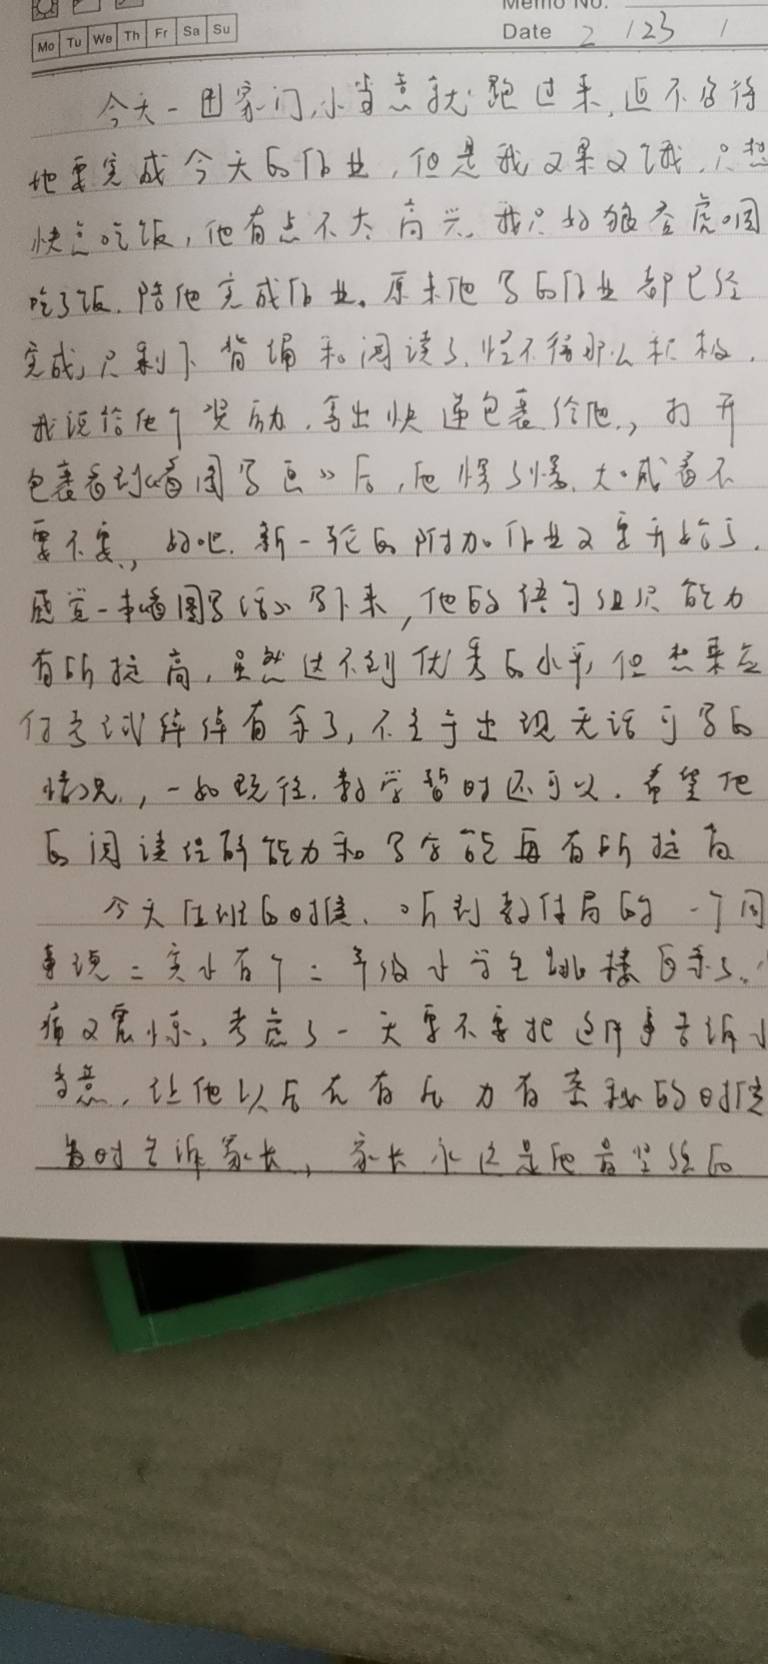 Memo No.
Mo Tu We Th Fr Sa Su
Date 2 / 23 /
今天一回家门,小当意就跑过来,迫不及待
地要完成今天的作业,但是我又累又饿,只想
快点吃饭,他有点不太高兴,我只好狼吞虎咽
吃了饭,陪他完成作业。原来他写的作业都已经
完成,只剩下背诵和阅读了,怪不得那么积极.
我说给他个奖励,拿出快递包裹给他,打开
包裹看到《看图写画》后,他愣了愣,大喊着不
要不要,好吧,新一轮的附加作业又要开始了.
感觉一本《看图写话》写下来,他的语句组织能力
有所提高,虽然达不到优秀的水平,但想来应
付考试绰绰有余了,不至于出现无话可写的
情况,一如既往,数学暂时还可以.希望他
的阅读理解能力和写字能再有所提高
今天值班的时候,听到教体局的一个同
事说二实小有个二年级小学生跳楼自杀了,
痛又震惊,考虑了一天要不要把这件事告诉小
当意,让他以后在有压力有委屈的时候
及时告诉家长,家长永远是他最坚强的